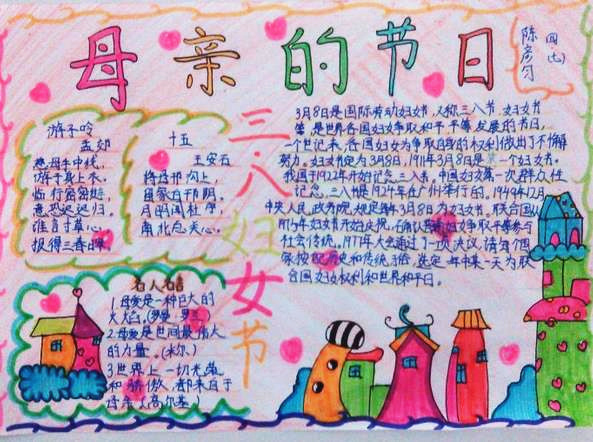 母亲的节日
陈彦匀
四(七)
游子吟
孟郊
慈母手中线,
游子身上衣。
临行密密缝,
意恐迟迟归。
谁言寸草心,
报得三春晖。
十五
王安石
将母邗沟上,
留家白邗阴。
月明闻杜宇,
南北总关心。
三八妇女节
3月8日是国际劳动妇女节,又称三八节、妇女节
等,是世界各国妇女争取和平、平等、发展的节日,
一个世纪来,各国妇女为争取自身的权利做出了不懈
努力。妇女节定为3月8日,1911年3月8日是第一个妇女节。
我国于1922年开始纪念三八节。中国妇女第一次群众性
纪念三八节是1924年在广州举行的。1949年12月
中央人民政务院规定每年3月8日为妇女节。联合国从
1975年妇女节开始庆祝,
社会传统。1977年大会通过了一项决议,请每个国
家按照历史和传统习俗,选定一年中某一天为联
合国妇女权利和世界和平日。
名人名言
1.母爱是一种巨大的
火焰。(罗曼·罗兰)
2.母爱是世间最伟大
的力量。(米尔)
3世界上一切光荣
和骄傲,都来自于
母亲。(高尔基)